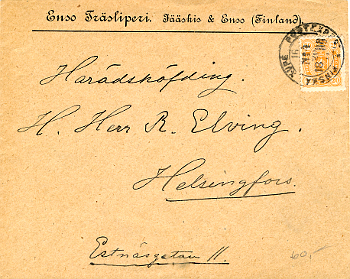 Enso Träsliperi. Jääskis & Enso (Finland).
Harädshöfding.
H. Herr R. Elving.
Helsingfors.
Estnäsgatan 11.
100,-